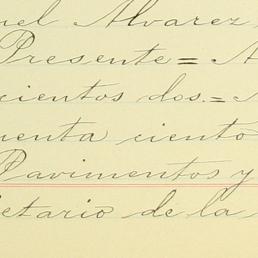 uel Alvarez
Presente = A
cientos dos. =
uenta ciento
Pavimentos y
etario de la